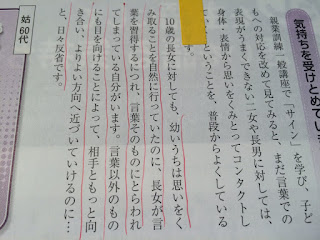 気持ちを受けとめてい
親業訓練一般講座で「サイン」を学び、子ど
もへの対応を改めて見てみると、まだ言葉での
表現がうまくできない二女や長男に対しては、
身体・表情から思いをくみとってコンタクトし
ということを、普段からよくしている
10歳の長女に対しても、幼いうちは思いをく
み取ることを自然に行っていたのに、長女が言
葉を習得するにつれ、言葉そのものにとらわれ
てしまっている自分がいます。言葉以外のもの
にも目を向けることによって、相手ともっと向
き合い、よりよい方向へ近づいていけるのに…
と、日々反省です。
姑 60代